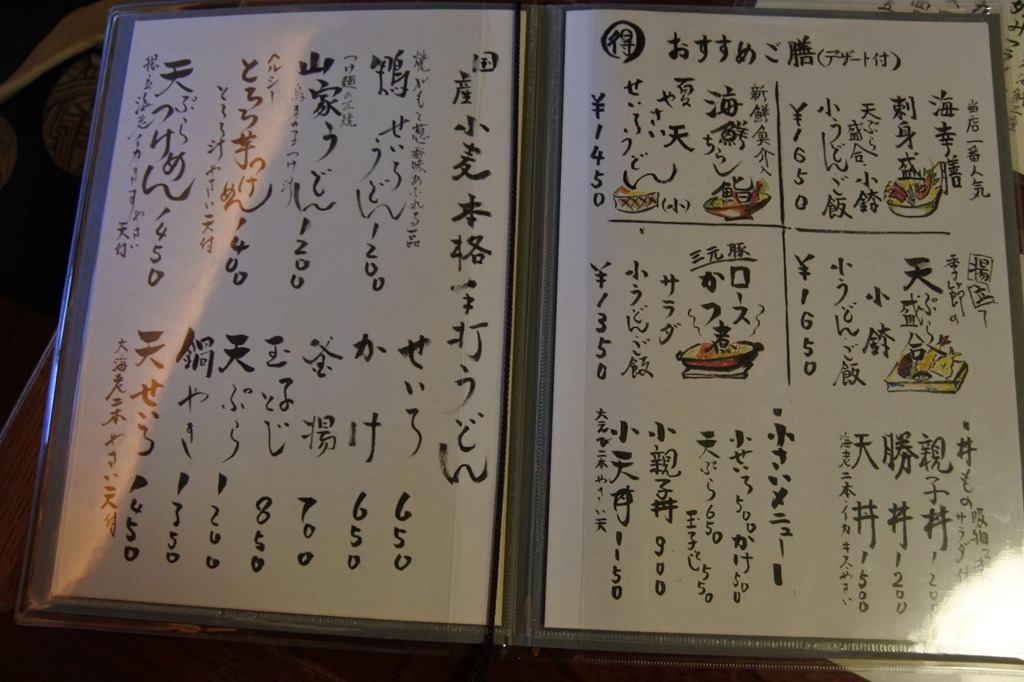 得 おすすめご膳(デザート付)
当店一番人気
海幸膳
刺身盛
天ぷら盛合・小鉢
小うどん・ご飯
¥1650
新鮮魚介入
海鮮ちらし鮨(小)
夏やさい天
せいろうどん
¥1450
揚立て
季節の
天ぷら盛合
小鉢
小うどん・ご飯
¥1650
三元豚
ロースかつ煮
サラダ
小うどん・ご飯
¥1350
・丼もの
親子丼 1200
勝丼 1200
天丼 1500
海老二本・イカ・キス・やさい
・小さいメニュー
小せいろ500 かけ50
天ぷら650
玉子とじ550
小親子丼 900
小天丼 1150
大えび二本やさい天
国産小麦本格手打うどん
焼いがもと葱
鴨せいろうどん 1200
山家うどん 1200
ヘルシー
とろろ芋つけめん 1400
とろろ汁 やさい天付
天ぷらつけめん 1450
天付
せいろ 650
かけ 650
釜揚 700
玉子とじ 850
天ぷら 1200
鍋やき 1350
天せいろ 1450
大海老二本やさい天付